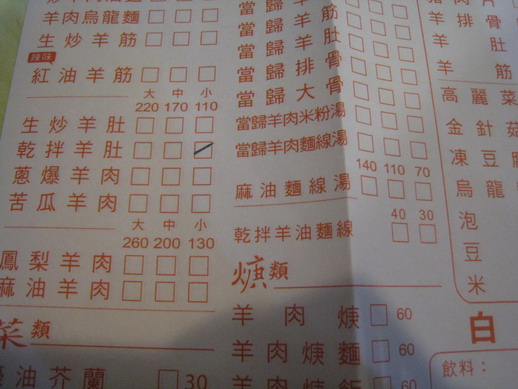 羊肉烏龍麵
生炒羊筋
辣味
紅油羊筋
大 中 小
220 170 110
生炒羊肚
乾拌羊肚
蔥爆羊肉
苦瓜羊肉
大 中 小
260 200 130
鳳梨羊肉
麻油羊肉
菜類
油芥蘭 30
當歸羊
當歸羊筋
當歸羊肚
當歸排骨
當歸大骨
當歸羊肉米粉湯
當歸羊肉麵線湯
140 110 70
麻油麵線湯
40 30
乾拌羊油麵線
焿類
羊肉焿 60
羊肉焿麵 60
羊肉焿飯 60
骨
羊排
羊肚
羊筋
高麗菜
金針菇
凍豆腐
烏龍
泡
豆
米
白
飲料：